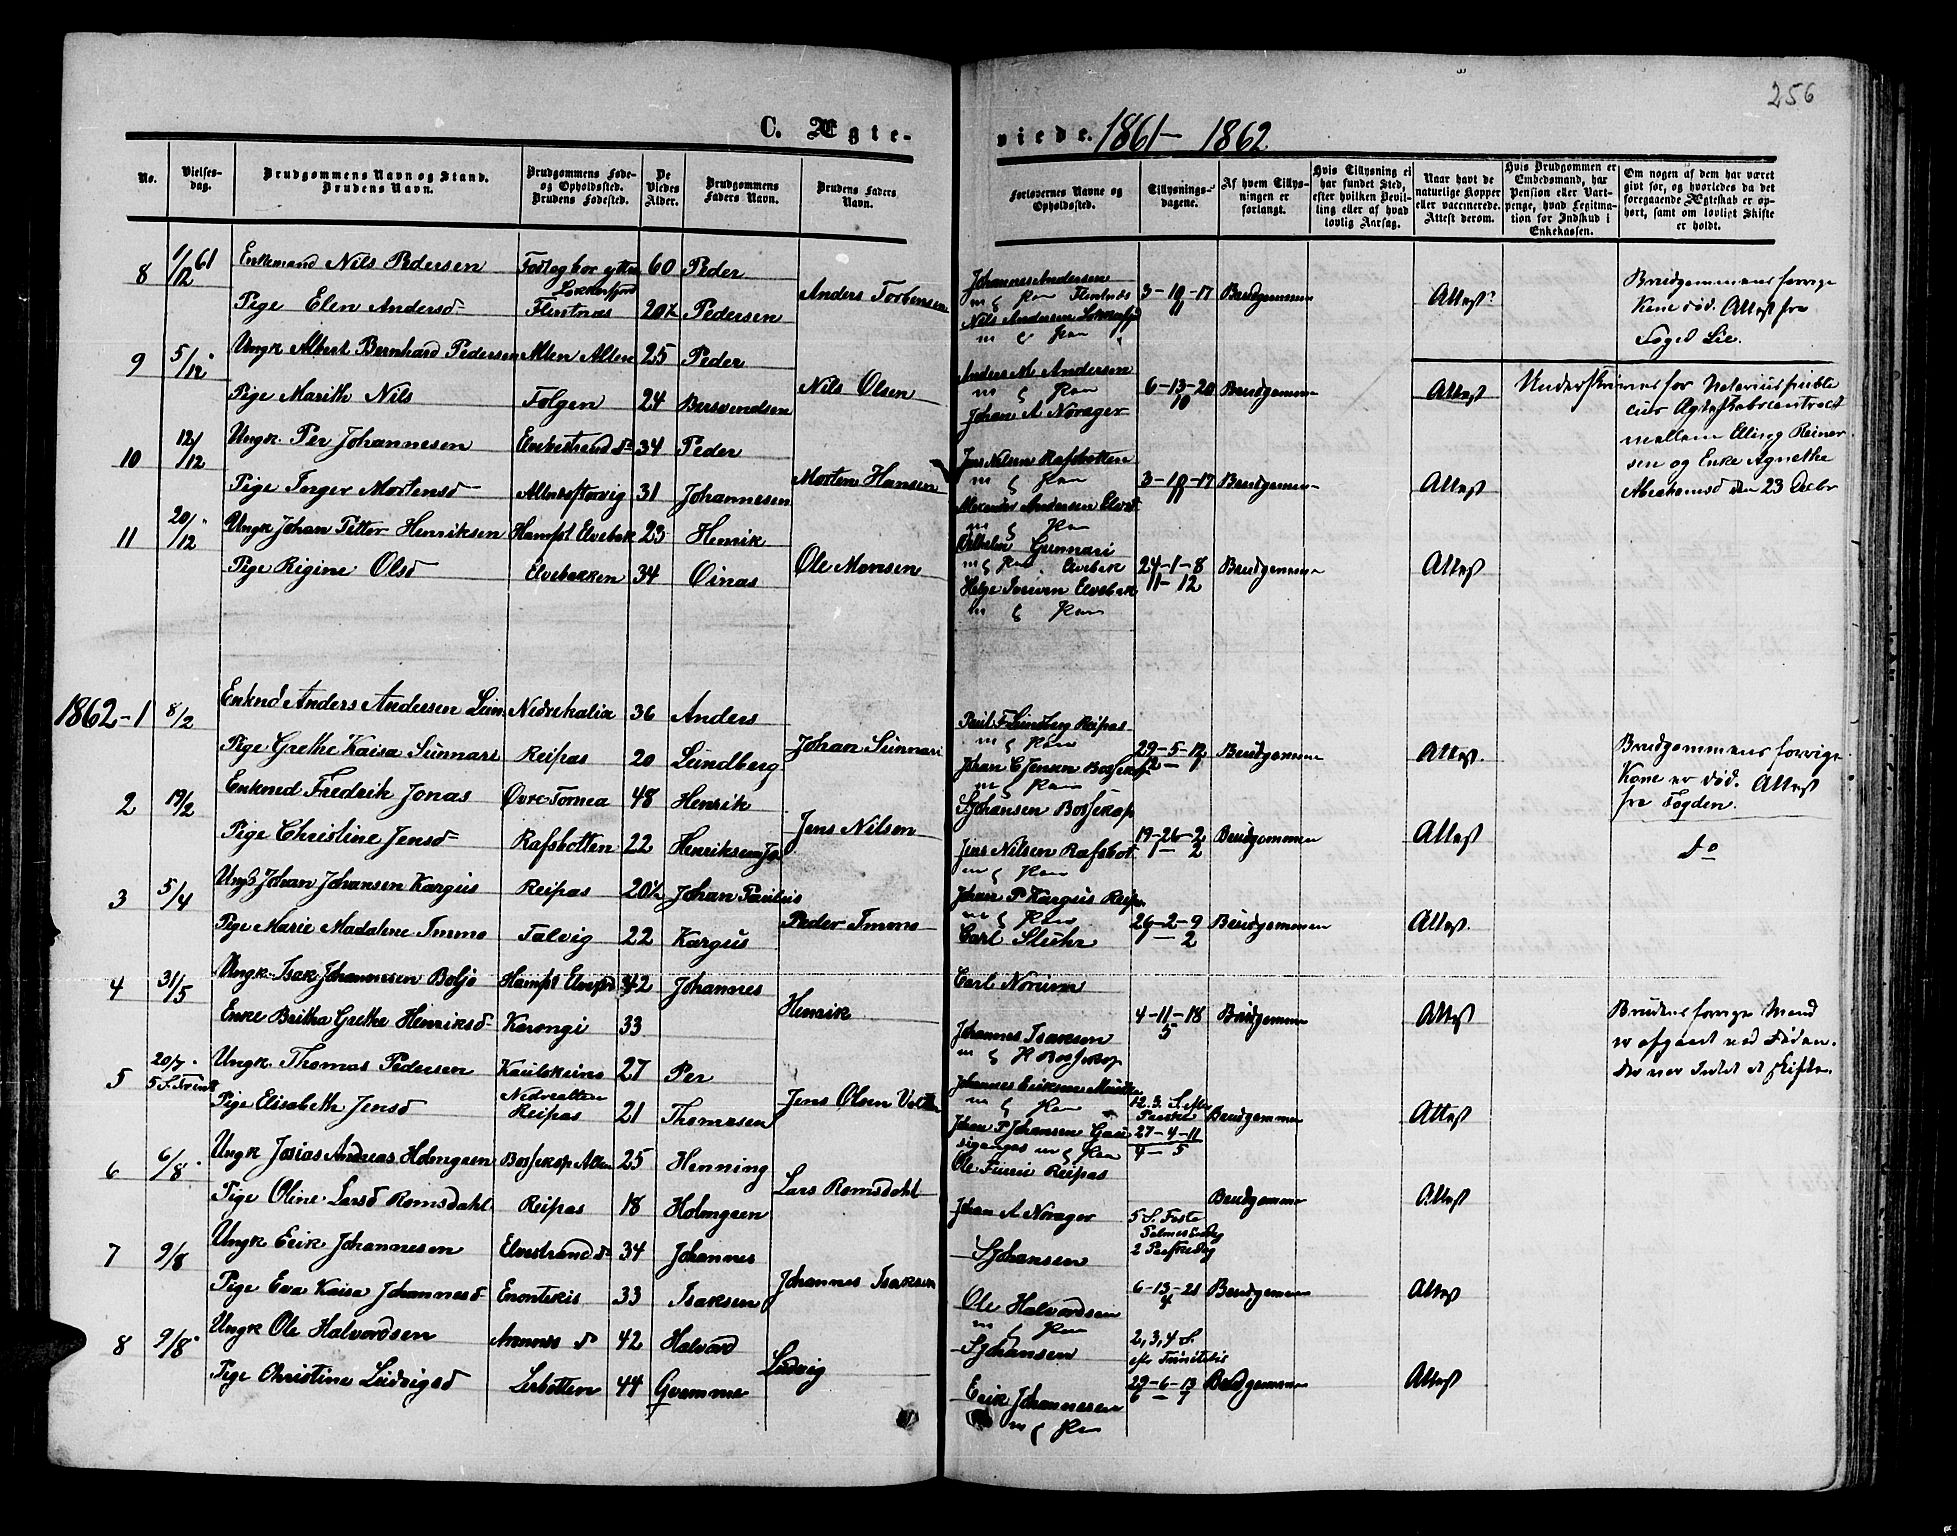 256
C. Ægte-
viede. 1861 - 1862
No.
Vielses-
dag.
Brudgommens Navn og Stand.
Brudens Navn.
Brudgommens Føde-
og Opholdssted.
Brudens Fødested.
De
Viedes
Alder.
Brudgommens
Faders Navn.
Brudens Faders
Navn.
Forlovernes Navne og
Opholdssted.
Tillysnings-
dagene.
Af hvem Tillys-
ningen er
forlangt.
Hvis Tillysning ei
har fundet Sted,
efter hvilken Bevil-
ling eller af hvad
lovlig Aarsag.
Naar havt de
naturlige Kopper
eller vaccinerede.
Attest derom.
Hvis Brudgommen er
Embedsmand, har
Pension eller Vart-
penge, hvad Legitma-
tion for Indskud i
Enkekassen.
Om nogen af dem har været
givt før, og hvorledes da det
foregaaende Ægteskab er op-
hørt, samt om lovligt Skifte
er holdt.
8 1/12 61 Enkemand Nils Pedersen 60 Peder
Pige Elen Andersd Flintnæs 20½ Pedersen
Anders Torbensen
Johannes Andersen
m e Han Flintnæs
Nils Andersen
m e Han
3-10-17
11
Brudgommen Attest
Brudgommens forrige
Kone død. Attest fra
Foged Lie.
9 5/12 Ungk Albert Bernhard Pedersen Alten Alten 25 Peder
Pige Marith Nils Følgen 24 Bersvendsen
Nils Olsen
Anders M Andersen
m e Han
Johan A Norager
6-13-20
10
Brudgommen Attest
Underskrives for Notarius public
cus Ægteskabscontract
mellem Elling Reiner
sen og Enke Agnethe
Abrahamsd den 23 Decbr
10 12/12 Ungk. Per Johannesen Elvebestrand do 34 Peder
Pige Inger Mortensd 31 Johannesen
Morten Hansen
Jens Nilsen Rafsbotten
m e Han
Alexander Andersen Elvest
m e Han
3-10-17
11
Brudgommen Attest
11 20/12 Ungk Johan Petter Henriksen Hamfst Elvebak 23 Henrik
Pige Regine Olsd Elvebakken 34 Oinas
Ole Monsen
Vilhelm Gunnari
m e Han. Elvebak
Helge Iversen Elvebak
m e Han
24-1-8
11-12
Brudgommen Attest
1862-1 8/2 Enkmd Anders Andersen Lun Nedrekalix 36 Anders
Pige Grethe Kaisa Sunnari Reipas 20 Lundberg
Johan Sunnari
Paul F Lundberg Reipas
m e Han
Johan C Jensen Bossekop
m e Han
29-5-12
12-1
Brudgommen Attest.
Brudgommens forrige
Kone er død. Attest
fra Fogden.
2 19/2 Enkmd Fredrik Jonas Øvre Tornea 48 Henrik
Pige Christine Jensd Rafsbotten 22 Henriksen
Jens Nilsen
S Johansen Bossekop
Jens Nilsen Rafsbot
m e Han
19-26-2
1-2
Brudgommen Attest
do
3 5/4 Ungk Johan Johansen Kargus Reipas 20½ Johan Paulus
Pige Marie Madalene Timmo Talvig 22 Kargus
Peder Timono
Johan P Kargus Reipas
m e Han
Carl Stuhr
26-2-9
1-2
Brudgommen Attest.
4 31/5 Ungk. Isak Johannesen Boljo Hamfst 42 Johannes
Enke Britha Grethe Henriksd Karongi 33
Henrik
Carl Norum
Johannes Isaksen
m e H Bossekop
4-11-18
5
Brudgommen Attest
Brudens forrige Mand
er afgaaet ved Døden.
Der var Intet at skifte.
5 20/7 5 S. Trinit Ungk. Thomas Pedersen Kautokeino 27 Per
Pige Elisabeth Jensd Nedrealten
Reipas 21 Thomesen
Jens Olsen
Johannes Eriksen
m e Han
Johan P Johansen
m e Han
12.3. S. efter
Paaske
27-4-11
4-5
Brudgommen Attest
6 6/8 Ungk Josias Andreas Holmgren Bossekop Alten 25 Henning
Pige Oline Larsd Romsdahl Reipas 18 Holmgren
Lars Romsdahl
Ole Reipas
Johan A Norager
5 S. Faste
Palmesøndag
2 Paaskedag
Brudgommen Attest
7 9/8 Ungk Erik Johannesen Elvestrand do 34 Johannes
Pige Eva Kaisa Johannesd Enontekis 33 Isaksen
Johannes Isaksen
S Johansen
Ole Halvordsen
m e Han
6-13-21
4
Brudgommen Attest
8 9/8 Ungk Ole Halvordsen do 42 Halvord
Pige Christine Ludvigsd Lerbotten 44 Gvamme
Ludvig
S Johansen
Erik Johannesen
m e Han
2, 3, 4 S.
efter Trinitatis
29-6-13
6-7
Brudgommen Attest